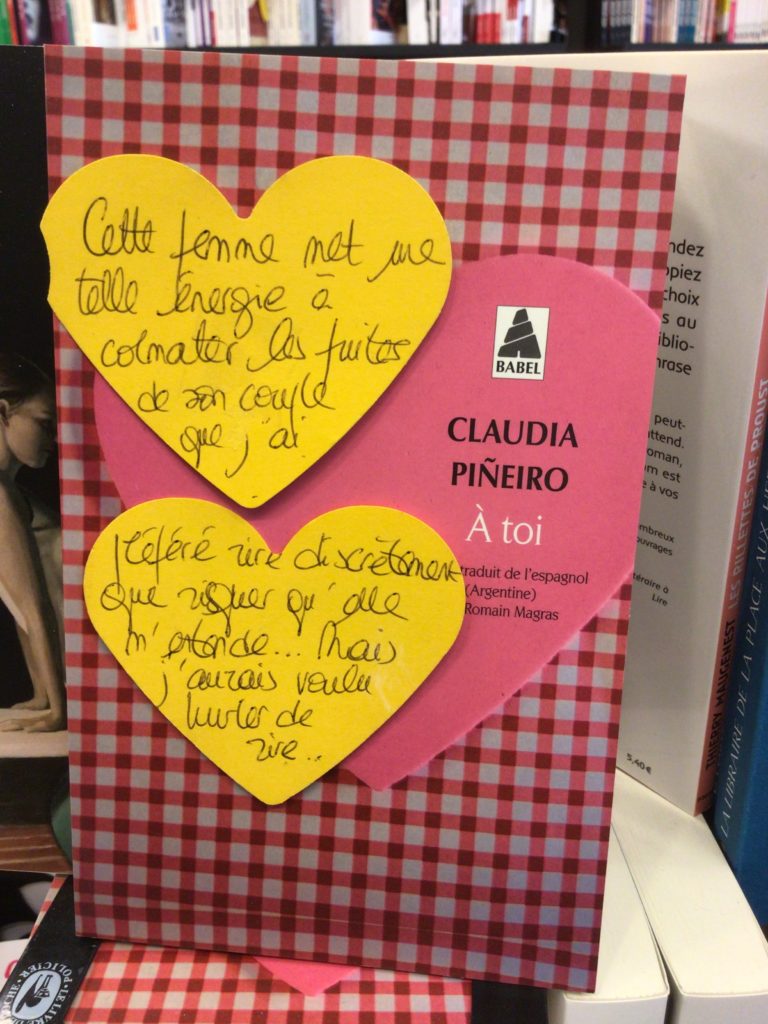 Cette femme met une
telle énergie à
colmater les fuites
de son couple
que j'ai
préféré rire discrètement
que risquer qu'elle
m'entende... Mais
j'aurais voulu
hurler de
rire...
BABEL
CLAUDIA
PIÑEIRO
À toi
traduit de l'espagnol
(Argentine)
Romain Magras
ndez
opiez
choix
s au
iblio-
hrase
peut-
attend.
roman,
m est
e à vos
ombreux
ouvrages
ttéraire à
Lire
5,40 €
THIERRY MAUGENEST LES RILLETTES DE PROUST
LA LIBRAIRE DE LA PLACE AUX
POLICIER • LE LIVRE DE